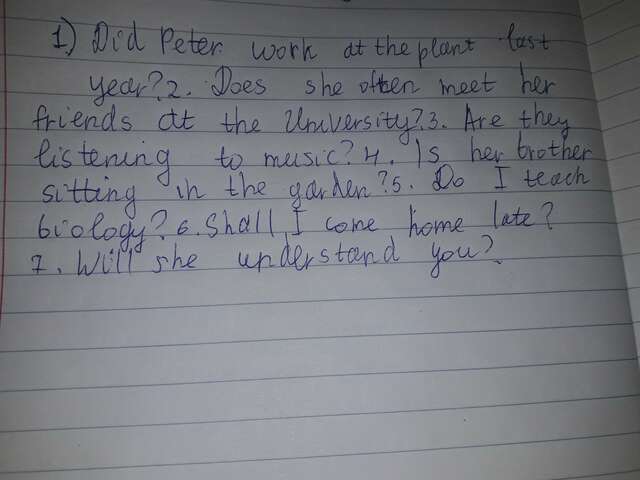 1) Did Peter work at the plant last
year? 2. Does she often meet her
friends at the University? 3. Are they
listening to music? 4. Is her brother
sitting in the garden? 5. Do I teach
biology? 6. Shall I come home late?
7. Will she understand you?